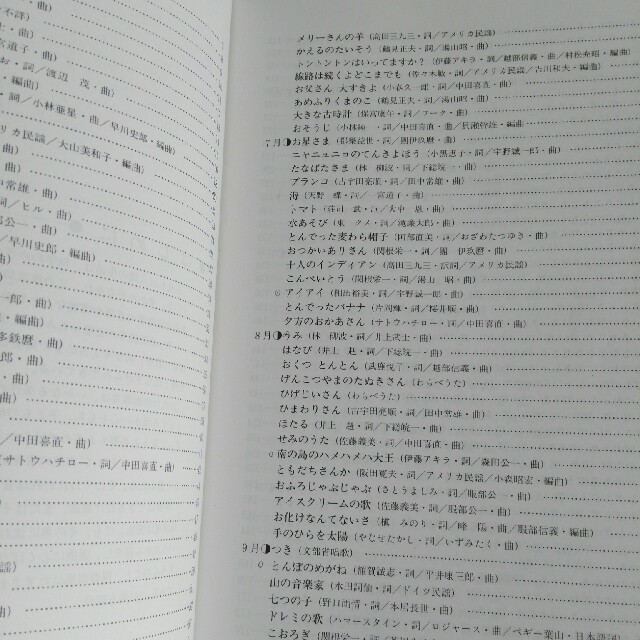 不詳)
宮道子・曲)
お・詞/渡辺 茂・曲)
・編曲)
詞/小林亜星・曲/早川史郎・編曲)
メリカ民謡/大山美和子・編曲)
中常雄・曲)
詞/ヒル・曲)
部公一・曲)
早川史郎・編曲)
・曲)
一郎・曲)
・編曲)
多鉄麿・曲)
郎・曲)
・曲)
・曲)
/中田喜直・曲)
(サトウハチロー・詞/中田喜直・曲)
曲)
・曲)
謡)
曲)
メリーさんの羊(高田三九三・詞/アメリカ民謡)
かえるのたいそう(鶴見正夫・詞/湯山昭・曲)
トントントンはいってますか?(伊藤アキラ・詞/越部信義・曲/村松秀昭・編曲)
線路は続くよどこまでも(佐々木敏・詞/アメリカ民謡/古川和夫・編曲)
お父さん 大すきよ(小春久一郎・詞/中田喜直・曲)
あめふりくまのこ(鶴見正夫・詞/湯山昭・曲)
大きな古時計(保富康午・詞/ワーク・曲/長瀬啓雄・編曲)
おそうじ(小林純一・詞/中田喜直・曲)
7月 お星さま(都築益世・詞/團伊玖磨・曲)
ニャニュニョのてんきよほう(小黒恵子・詞/宇野誠一郎・曲)
たなばたさま(林 柳波・詞/下総皖一・曲)
ブランコ(古宇田亮直・詞/田中常雄・曲)
海(天野 蝶・詞/一宮道子・曲)
トマト(荘司 武・詞/大中 恩・曲)
水あそび(東 クメ・詞/滝廉太郎・曲)
とんでった麦わら帽子(阿部直美・詞/おざわたつゆき・曲)
おつかいありさん(関根栄一・詞/團 伊玖磨・曲)
十人のインディアン(高田三九三・訳詞/アメリカ民謡)
こんぺいとう(関根栄一・詞/湯山 昭・曲)
○ アイアイ(相田裕美・詞/宇野誠一郎・曲)
とんでったバナナ(片岡輝・詞/桜井順・曲)
夕方のおかあさん(サトウハチロー・詞/中田喜直・曲)
8月 うみ(林 柳波・詞/井上武士・曲)
はなび(井上 赳・詞/下総皖一・曲)
おくつ とんとん(武鹿悦子・詞/越部信義・曲)
げんこつやまのたぬきさん(わらべうた)
ひげじいさん(わらべうた)
ひまわりさん(古宇田亮順・詞/田中常雄・曲)
ほたる(井上 赳・詞/下総皖一・曲)
せみのうた(佐藤義美・詞/中田喜直・曲)
○ 南の島のハメハメハ大王(伊藤アキラ・詞/森田公一・曲)
ともだちさんか(阪田寛夫・詞/アメリカ民謡/小森昭宏・編曲)
おふろじゃぶじゃぶ(さとうよしみ・詞/服部公一・曲)
アイスクリームの歌(佐藤義美・詞/服部公一・曲)
お化けなんてないさ(槇 みのり・詞/峰 陽・曲/服部信義・編曲)
手のひらを太陽(やなせたかし・詞/いずみたく・曲)
9月 つき(文部省唱歌)
○ とんぼのめがね(額賀誠志・詞/平井康三郎・曲)
山の音楽家(水田詩仙・詞/ドイツ民謡)
七つの子(野口雨情・詞/本居長世・曲)
ドレミの歌(ハマースタイン・詞/ロジャース・曲/ペギー葉山・日本語詞)
こおろぎ(関根栄一・詞/芥川